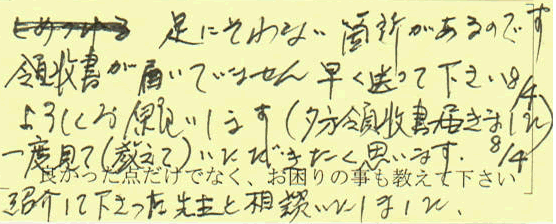 足にそわない箇所があるのです
領収書が届いていません 早く送って下さい 8/4
よろしくお願いします (夕方領収書届きました) 8/4
一度見て(教えて)いただきたく思います.
良かった点だけでなく、お困りの事も教えて下さい
紹介して下さった先生と相談いたしました.